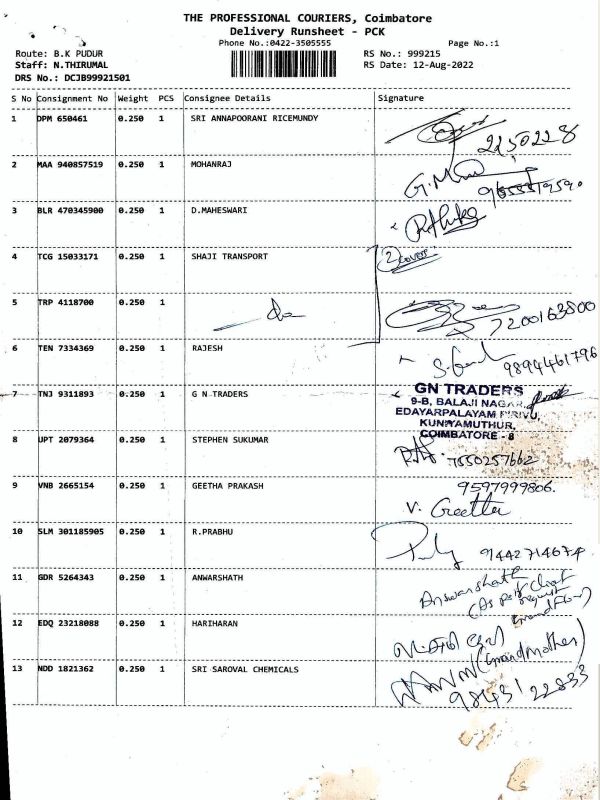 THE PROFESSIONAL COURIERS, Coimbatore
Delivery Runsheet - PCK
Phone No.:0422-3505555
Page No.:1
Route: B.K PUDUR
RS No.: 999215
Staff: N.THIRUMAL
RS Date: 12-Aug-2022
DRS No.: DCJB99921501
S No Consignment No Weight PCS Consignee Details Signature
1 DPM 650461 0.250 1 SRI ANNAPOORANI RICEMUNDY
2250228
2 MAA 940857519 0.250 1 MOHANRAJ
G.M
3 BLR 470345900 0.250 1 D.MAHESWARI
4 TCG 15033171 0.250 1 SHAJI TRANSPORT
2 cover
5 TRP 4118700 0.250 1 do
7200163800
6 TEN 7334369 0.250 1 RAJESH
9894461796
7 TNJ 9311893 0.250 1 G N TRADERS
GN TRADERS
9-B, BALAJI NAGAR,
EDAYARPALAYAM PIRIVU,
KUNIYAMUTHUR,
COIMBATORE - 8
8 UPT 2079364 0.250 1 STEPHEN SUKUMAR
7550257662
9 VNB 2665154 0.250 1 GEETHA PRAKASH
9597999806.
V. Geetha
10 SLM 301185905 0.250 1 R.PRABHU
9442714674
11 GDR 5264343 0.250 1 ANWARSHATH
Anwarshath
(As per client
request
Ground Floor)
12 EDQ 23218088 0.250 1 HARIHARAN
(Grandmother)
13 NDD 1821362 0.250 1 SRI SAROVAL CHEMICALS
98431 22833